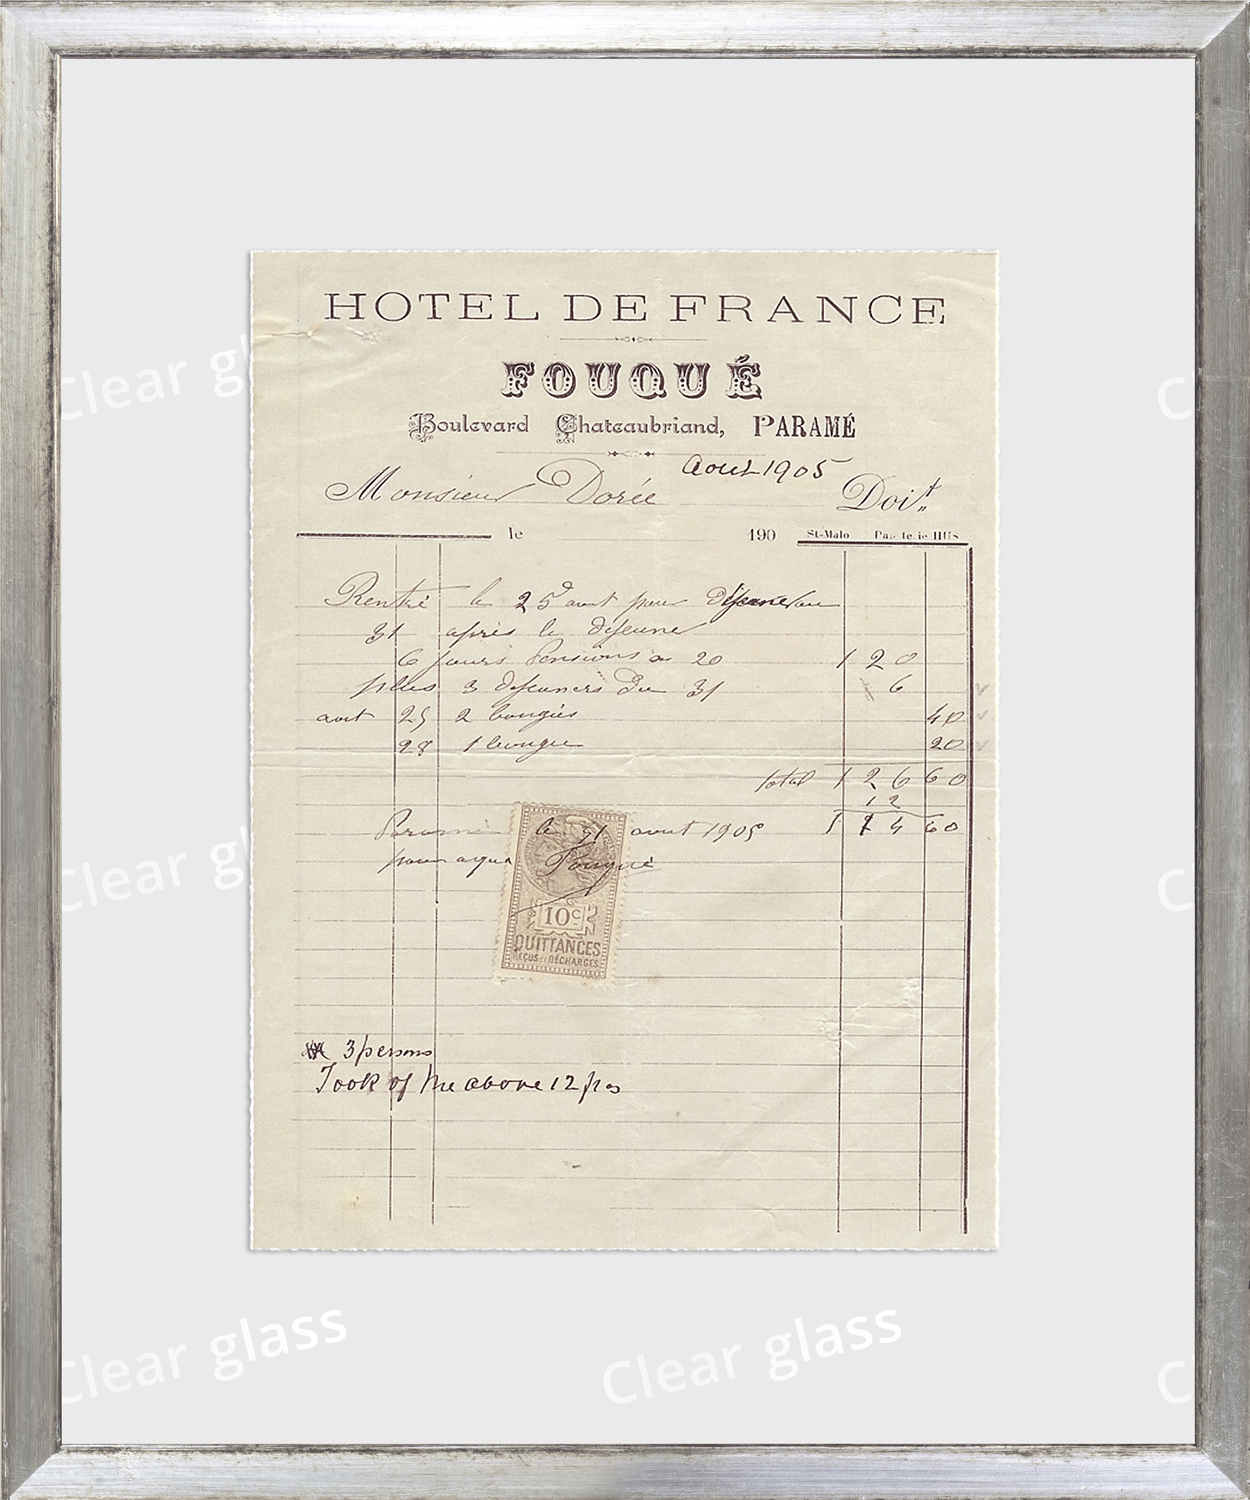 HOTEL DE FRANCE
FOUQUÉ
Boulevard Chateaubriand, PARAMÉ
Aout 1905
Monsieur Dorée Doit
le 190 St-Malo
Rentré le 25 aout pour Déjeuner
31 après le dejeuner
6 jours Pensions a 20 120
plus 3 dejeuners du 31 6
aout 25 2 bougies 40
28 1 bougie 20
total 126 60
12
114 60
Paramé le 31 aout 1905
pour acquit Fouqué
10c
QUITTANCES
REÇUS ET DÉCHARGES
3 persons
Took of the above 12 frs
Clear glass
Clear glass
Clear glass
Clear glass